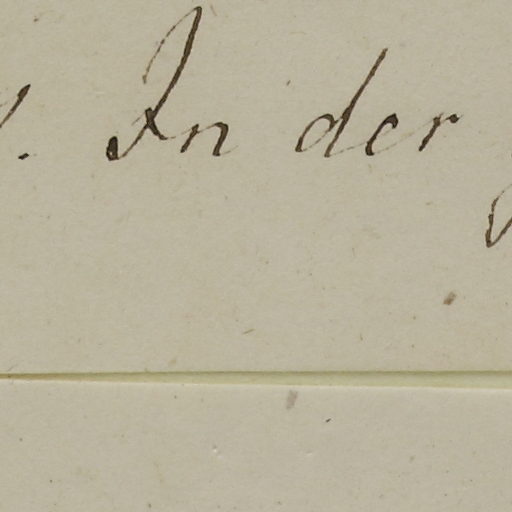 . In der